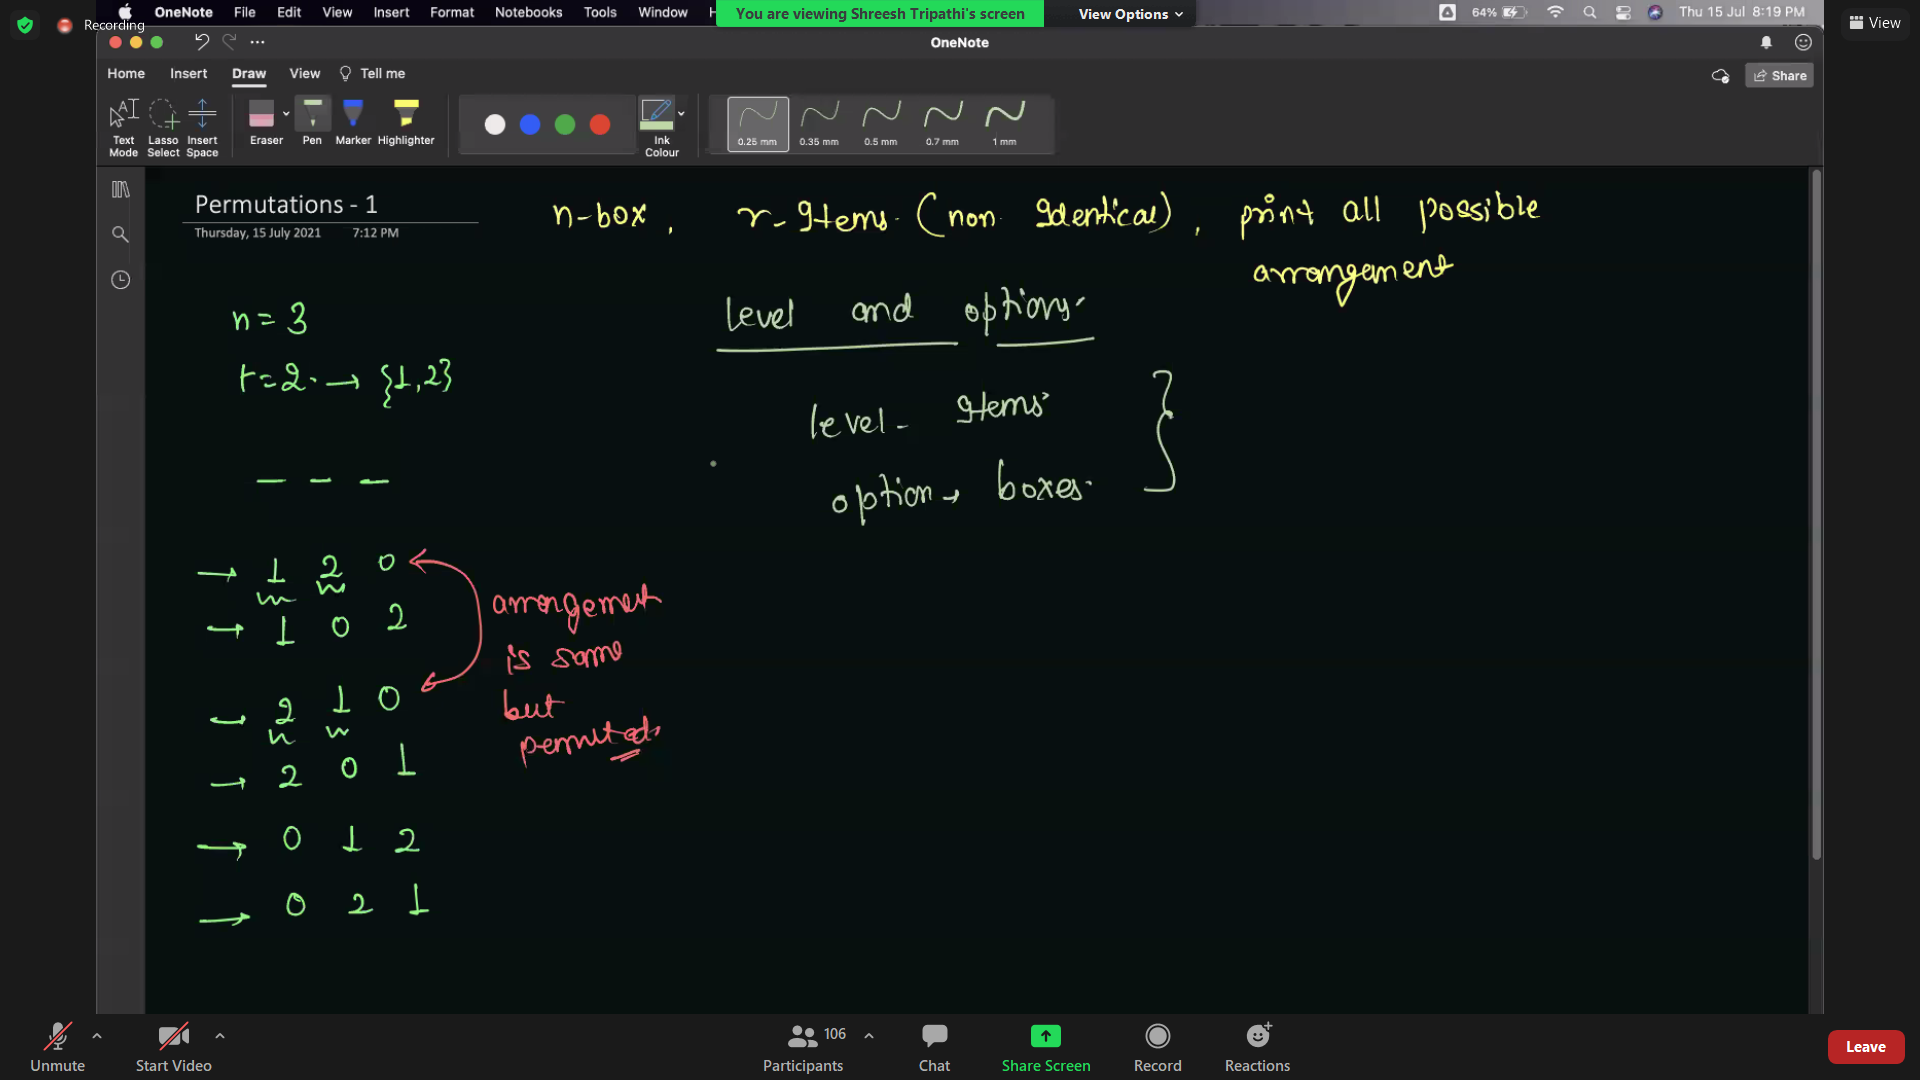 Recording
OneNote File Edit View Insert Format Notebooks Tools Window H
You are viewing Shreesh Tripathi's screen View Options
64% Thu 15 Jul 8:19 PM
View
OneNote
Home Insert Draw View Tell me
Share
Text Mode
Lasso Select
Insert Space
Eraser
Pen
Marker
Highlighter
Ink Colour
0.25 mm 0.35 mm 0.5 mm 0.7 mm 1 mm
Permutations - 1
Thursday, 15 July 2021 7:12 PM
n-box, r-Items. (non Identical), print all possible
arrangement
level and options.
n = 3
r=2. → {1,2}
level - Items
option → boxes.
→ 1 2 0
→ 1 0 2
→ 2 1 0
→ 2 0 1
→ 0 1 2
→ 0 2 1
arrangement
is same
but
permuted.
Unmute
Start Video
106
Participants
Chat
Share Screen
Record
Reactions
Leave